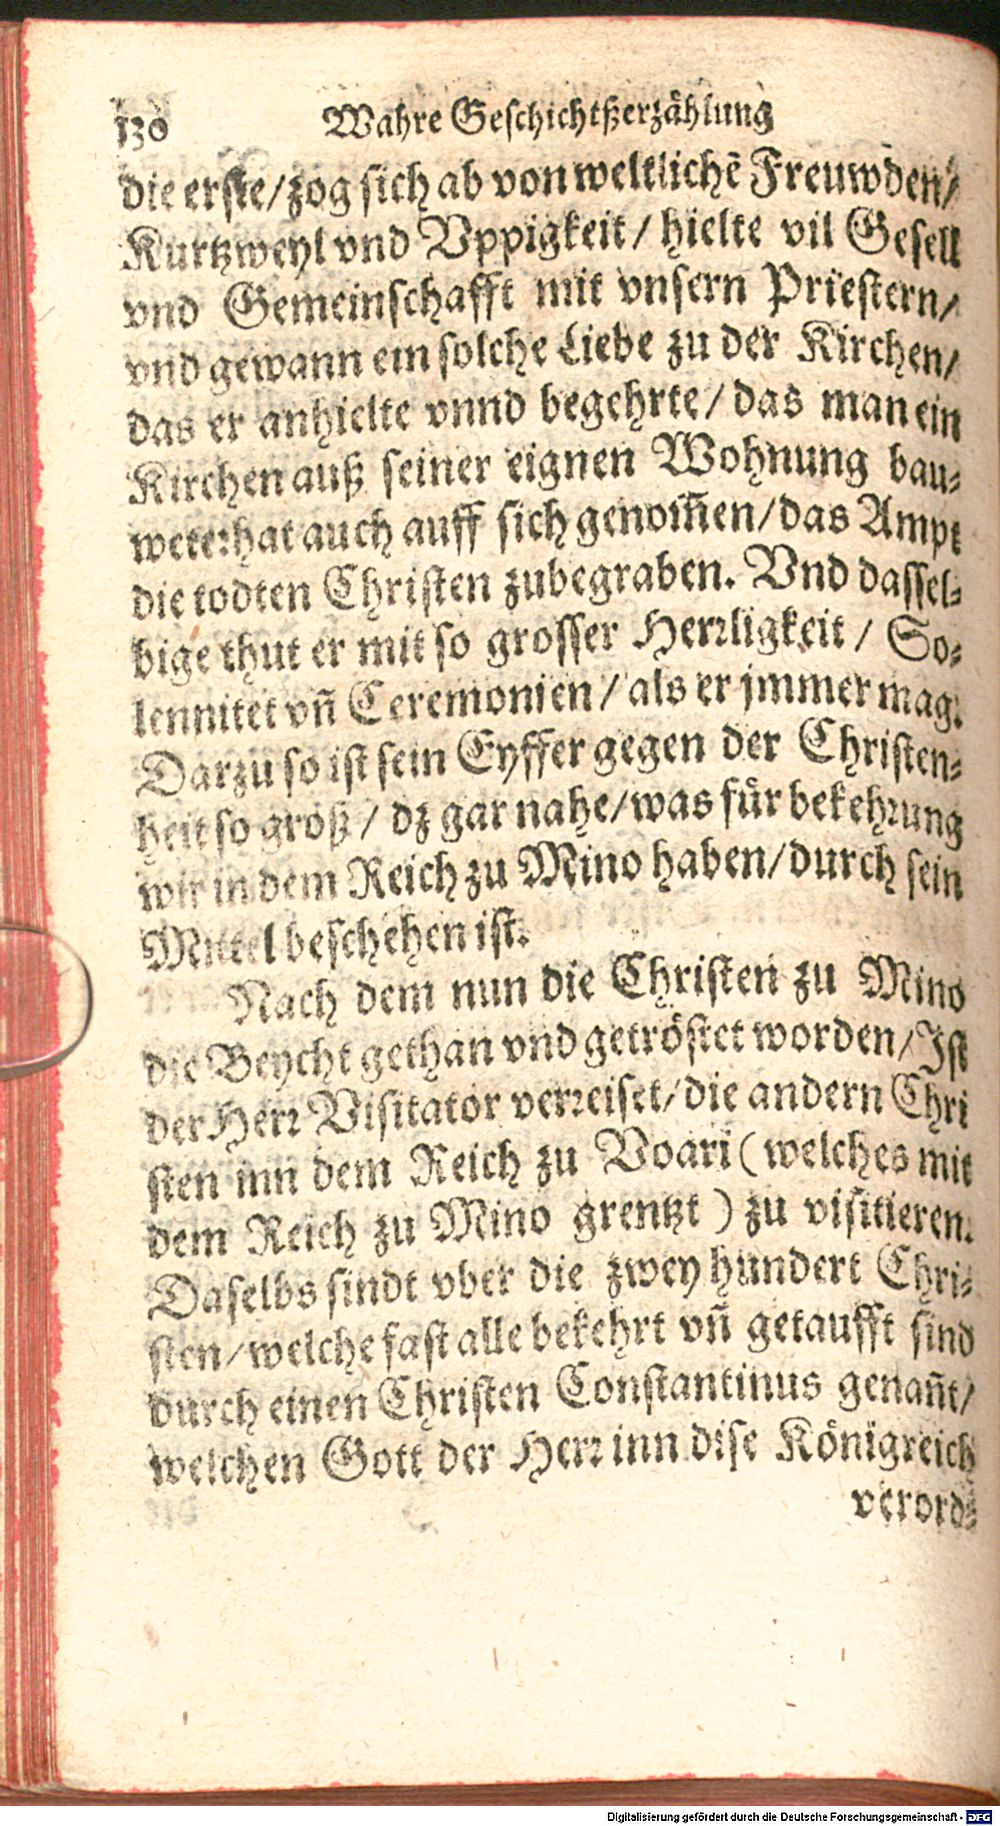 130 Wahre Geschichtßerzählung
die erste/zog sich ab von weltlichē Freuwden/
Kurtzweyl vnd Vppigkeit/ hielte vil Gesell
vnd Gemeinschafft mit vnsern Priestern/
vnd gewann ein solche Liebe zu der Kirchen/
das er anhielte vnnd begehrte/ das man ein
Kirchen auß seiner eignen Wohnung bau-
wete: hat auch auff sich genom̃en/das Ampt
die todten Christen zubegraben. Vnd dassel-
bige thut er mit so grosser Herrligkeit/ So-
lennitet vñ Ceremonien/ als er jmmer mag.
Darzu so ist sein Eyffer gegen der Christen-
heit so groß/ dz gar nahe/was für bekehrung
wir in dem Reich zu Mino haben/durch sein
Mittel beschehen ist.
Nach dem nun die Christen zu Mino
die Beycht gethan vnd getröstet worden/Ist
der Herr Visitator verreiset/die andern Chri
sten inn dem Reich zu Voari (welches mit
dem Reich zu Mino grentzt) zu visitieren.
Daselbs sindt vber die zwey hundert Chri-
sten/welche fast alle bekehrt vñ getaufft sind
durch einen Christen Constantinus genañt/
welchen Gott der Herr inn dise Königreich
verord-
Digitalisierung gefördert durch die Deutsche Forschungsgemeinschaft - DFG